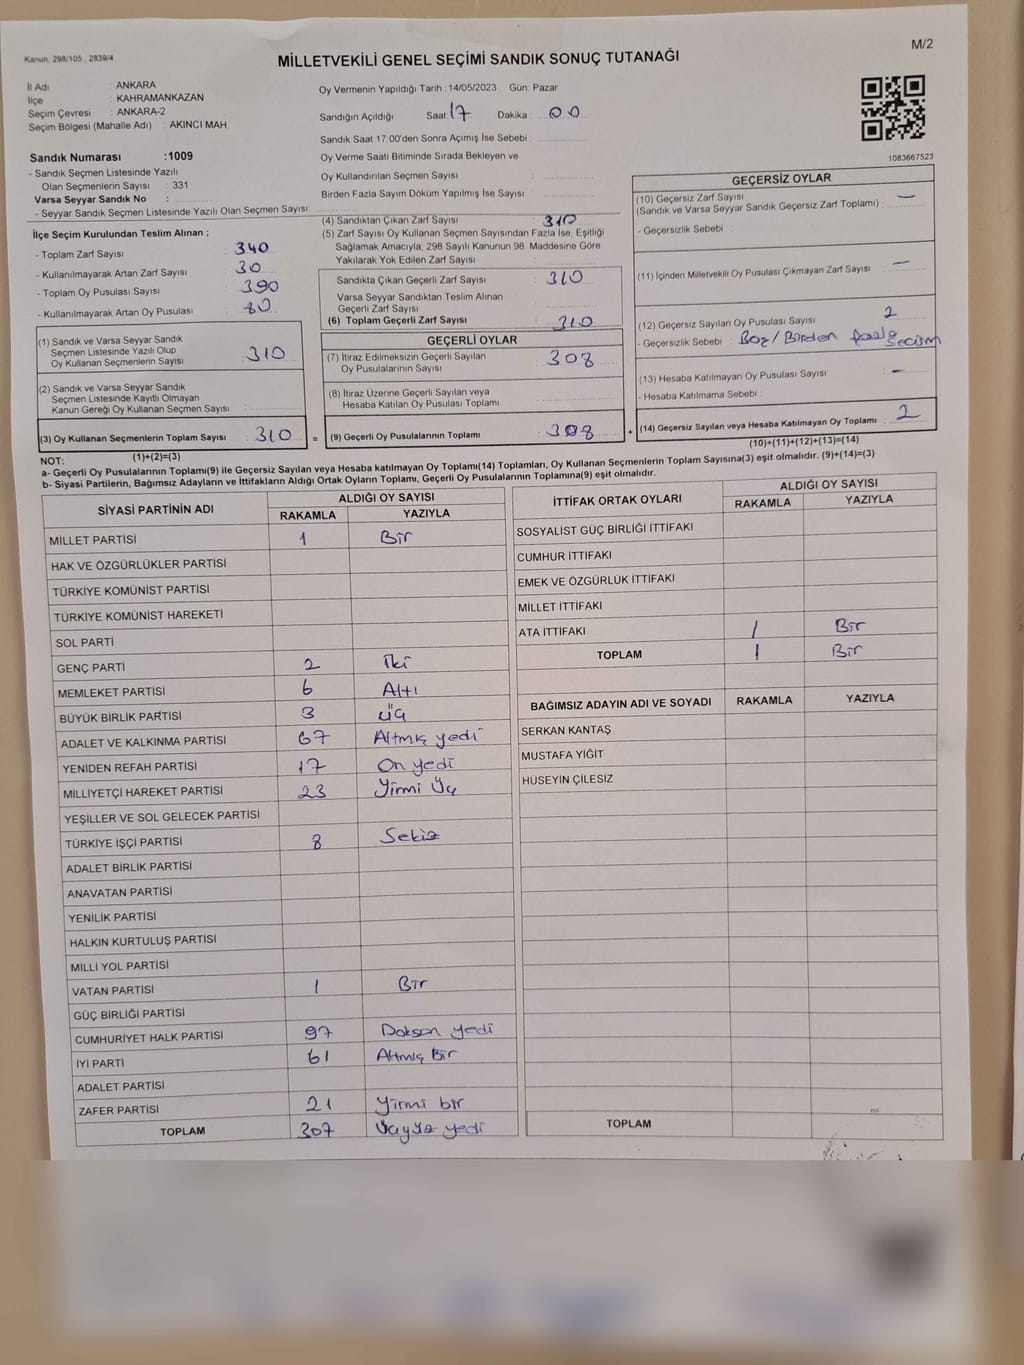 Kanun, 298/105 , 2839/4
MİLLETVEKİLİ GENEL SEÇİMİ SANDIK SONUÇ TUTANAĞI
M/2
İl Adı : ANKARA
İlçe : KAHRAMANKAZAN
Seçim Çevresi : ANKARA-2
Seçim Bölgesi (Mahalle Adı) : AKINCI MAH.
Sandık Numarası :1009
- Sandık Seçmen Listesinde Yazılı
Olan Seçmenlerin Sayısı : 331
Varsa Seyyar Sandık No :
- Seyyar Sandık Seçmen Listesinde Yazılı Olan Seçmen Sayısı:
Oy Vermenin Yapıldığı Tarih : 14/05/2023 Gün: Pazar
Sandığın Açıldığı Saat: 17 Dakika : 00
Sandık Saat 17:00'den Sonra Açımış İse Sebebi :
Oy Verme Saati Bitiminde Sırada Bekleyen ve
Oy Kullandırılan Seçmen Sayısı :
Birden Fazla Sayım Döküm Yapılmış İse Sayısı :
1083667523
İlçe Seçim Kurulundan Teslim Alınan ;
- Toplam Zarf Sayısı : 340
- Kullanılmayarak Artan Zarf Sayısı : 30
- Toplam Oy Pusulası Sayısı : 390
- Kullanılmayarak Artan Oy Pusulası : 80
(1) Sandık ve Varsa Seyyar Sandık
Seçmen Listesinde Yazılı Olup
Oy Kullanan Seçmenlerin Sayısı : 310
(2) Sandık ve Varsa Seyyar Sandık
Seçmen Listesinde Kayıtlı Olmayan
Kanun Gereği Oy Kullanan Seçmen Sayısı :
(3) Oy Kullanan Seçmenlerin Toplam Sayısı : 310
(1)+(2)=(3)
(4) Sandıktan Çıkan Zarf Sayısı : 310
(5) Zarf Sayısı Oy Kullanan Seçmen Sayısından Fazla İse, Eşitliği
Sağlamak Amacıyla; 298 Sayılı Kanunun 98. Maddesine Göre
Yakılarak Yok Edilen Zarf Sayısı :
Sandıkta Çıkan Geçerli Zarf Sayısı : 310
Varsa Seyyar Sandıktan Teslim Alınan
Geçerli Zarf Sayısı :
(6) Toplam Geçerli Zarf Sayısı : 310
GEÇERLİ OYLAR
(7) İtiraz Edilmeksizin Geçerli Sayılan
Oy Pusulalarının Sayısı : 308
(8) İtiraz Üzerine Geçerli Sayılan veya
Hesaba Katılan Oy Pusulası Toplamı :
= (9) Geçerli Oy Pusulalarının Toplamı : 308
GEÇERSİZ OYLAR
(10) Geçersiz Zarf Sayısı
(Sandık ve Varsa Seyyar Sandık Geçersiz Zarf Toplamı) : —
- Geçersizlik Sebebi :
(11) İçinden Milletvekili Oy Pusulası Çıkmayan Zarf Sayısı : —
(12) Geçersiz Sayılan Oy Pusulası Sayısı : 2
- Geçersizlik Sebebi : Boş/Birden fazla seçim
(13) Hesaba Katılmayan Oy Pusulası Sayısı : -
- Hesaba Katılmama Sebebi :
+ (14) Geçersiz Sayılan veya Hesaba Katılmayan Oy Toplamı : 2
(10)+(11)+(12)+(13)=(14)
NOT:
a- Geçerli Oy Pusulalarının Toplamı(9) ile Geçersiz Sayılan veya Hesaba katılmayan Oy Toplamı(14) Toplamları, Oy Kullanan Seçmenlerin Toplam Sayısına(3) eşit olmalıdır. (9)+(14)=(3)
b- Siyasi Partilerin, Bağımsız Adayların ve İttifakların Aldığı Ortak Oyların Toplamı, Geçerli Oy Pusulalarının Toplamına(9) eşit olmalıdır.
SİYASİ PARTİNİN ADI ALDIĞI OY SAYISI
RAKAMLA YAZIYLA
MİLLET PARTİSİ 1 Bir
HAK VE ÖZGÜRLÜKLER PARTİSİ
TÜRKİYE KOMÜNİST PARTİSİ
TÜRKİYE KOMÜNİST HAREKETİ
SOL PARTİ
GENÇ PARTİ 2 İki
MEMLEKET PARTİSİ 6 Altı
BÜYÜK BİRLİK PARTİSİ 3 üç
ADALET VE KALKINMA PARTİSİ 67 Altmış yedi
YENİDEN REFAH PARTİSİ 17 On yedi
MİLLİYETÇİ HAREKET PARTİSİ 23 Yirmi üç
YEŞİLLER VE SOL GELECEK PARTİSİ
TÜRKİYE İŞÇİ PARTİSİ 8 Sekiz
ADALET BİRLİK PARTİSİ
ANAVATAN PARTİSİ
YENİLİK PARTİSİ
HALKIN KURTULUŞ PARTİSİ
MİLLİ YOL PARTİSİ
VATAN PARTİSİ 1 Bir
GÜÇ BİRLİĞİ PARTİSİ
CUMHURİYET HALK PARTİSİ 97 Doksan yedi
İYİ PARTİ 61 Altmış Bir
ADALET PARTİSİ
ZAFER PARTİSİ 21 Yirmi bir
TOPLAM 307 Üçyüz yedi
İTTİFAK ORTAK OYLARI ALDIĞI OY SAYISI
RAKAMLA YAZIYLA
SOSYALİST GÜÇ BİRLİĞİ İTTİFAKI
CUMHUR İTTİFAKI
EMEK VE ÖZGÜRLÜK İTTİFAKI
MİLLET İTTİFAKI
ATA İTTİFAKI 1 Bir
TOPLAM 1 Bir
BAĞIMSIZ ADAYIN ADI VE SOYADI RAKAMLA YAZIYLA
SERKAN KANTAŞ
MUSTAFA YİĞİT
HÜSEYİN ÇİLESİZ
TOPLAM